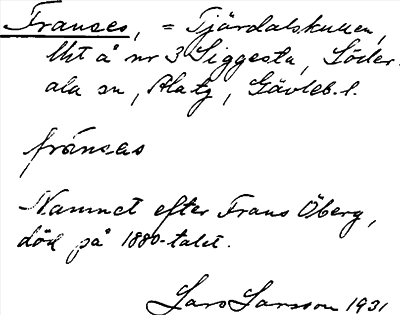 Franses, = Tjärdalskullen,
lht å nr 3 Siggesta, Söder-
ala sn, Alatg, Gävleb. l.
fránsas
Namnet efter Frans Öberg,
död på 1880-talet.
Lars Larsson 1931